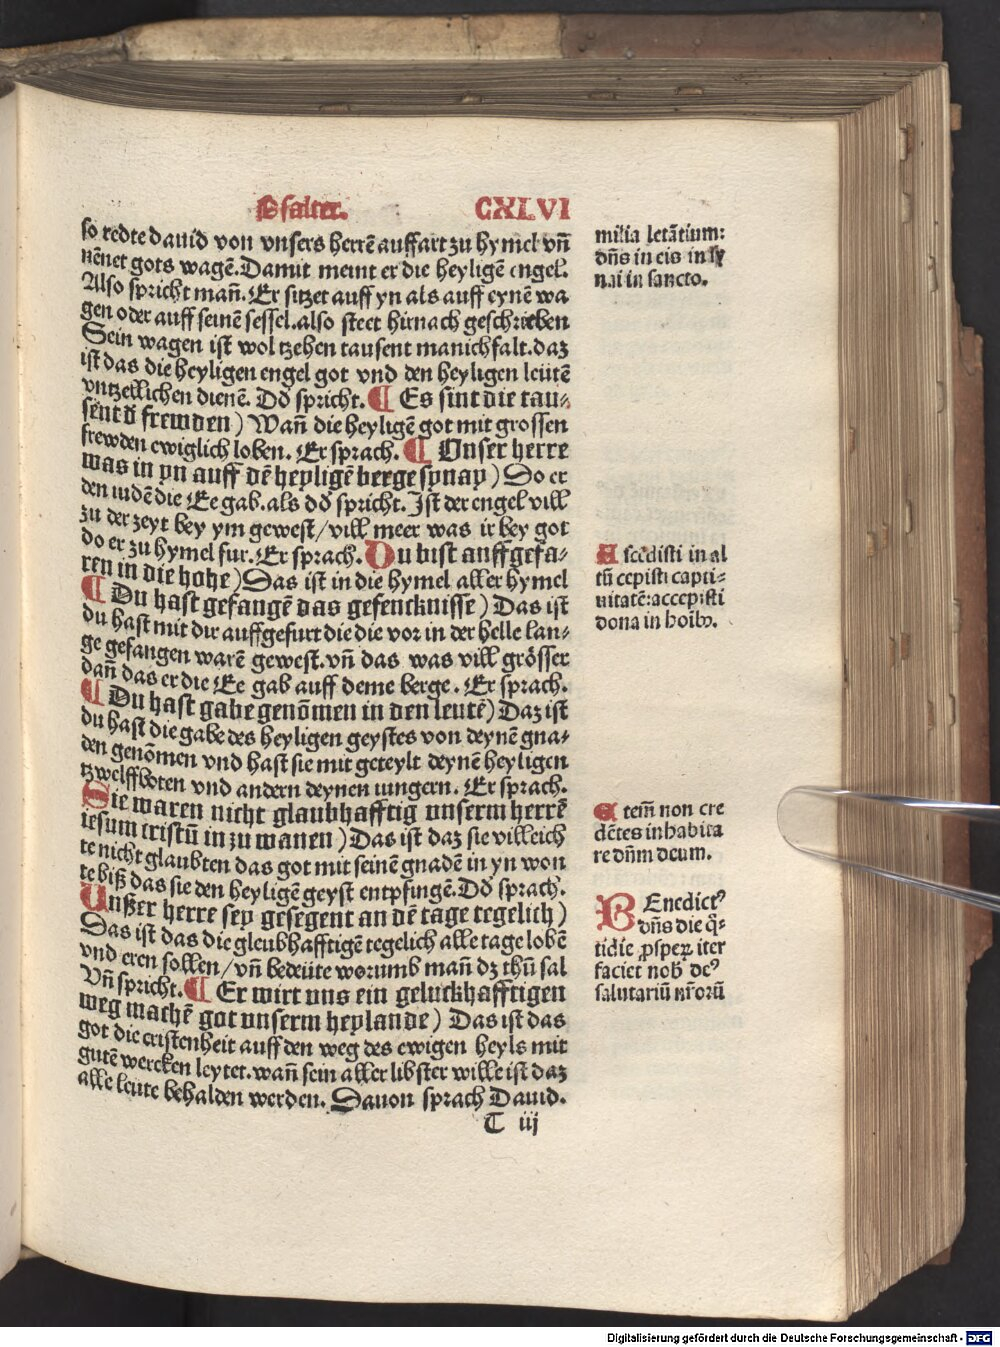 Psalter. CXLVI
so redte dauid von vnsers herrē auffart zu hymel vn̄
nēnet gots wagē. Damit meint er die heyligē engel.
Also spricht man̄. Er sitzet auff yn als auff eynē wa
gen oder auff seinē sessel. also steet hirnach geschrieben
Sein wagen ist wol tzehen tausent manichfalt. daz
ist das die heyligen engel got vnd den heyligen leutē
vntzellichen dienē. Dd spricht. ¶ Es sint die tau⸗
sent d̄ frewden) Wan̄ die heyligē got mit grossen
frewden ewiglich loben. Er sprach. ¶ Vnser herre
was in yn auff dē heyligē berge synay) So er
den iudē die Ee gab. als dd spricht. Ist der engel vill
zu der zeyt bey ym gewest/vill meer was ir bey got
do er zu hymel fur. Er sprach. Du bist auffgefa⸗
ren in die hohe) Das ist in die hymel aller hymel
¶ Du hast gefangē das gefencknisse) Das ist
du hast mit dir auffgefurt die die vor in der helle lan⸗
ge gefangen warē gewest. vn̄ das was vill grösser
dan̄ das er die Ee gab auff deme berge. Er sprach.
¶ Du hast gabe genōmen in den leutē) Daz ist
du hast die gabe des heyligen geystes von deynē gna⸗
den genōmen vnd hast sie mit geteylt deynē heyligen
tzwelffboten vnd andern deynen iungern. Er sprach.
Sie waren nicht glaubhafftig vnserm herrē
iesum cristū in zu wanen) Das ist daz sie villeich
te nicht glaubten das got mit seinē gnadē in yn won
te biß das sie den heyligē geyst entpfingē. Dd sprach.
Vnßer herre sey gesegent an dē tage tegelich)
Das ist das die gleubhafftigē tegelich alle tage lobē
vnd eren sollen/vn̄ bedeüte worumb man̄ dz thū sal
Vn̄ spricht. ¶ Er wirt vns ein geluckhafftigen
weg machē got vnserm heylande) Das ist das
got die cristenheit auff den weg des ewigen heyls mit
gutē wercken leytet. wan̄ sein aller libster wille ist daz
alle leute behalden werden. Dauon sprach Dauid.
T iij
milia letātium:
dn̄s in eis in sy
nai in sancto.
Ascēdisti in al
tū cepisti capti⸗
uitatē: accepisti
dona in hoib⁹.
Etem̄ non cre
dētes inhabita
re dn̄m deum.
BEnedict⁹
dn̄s die q̄⸗
tidie ꝓsperꝝ iter
faciet nob̄ de⁹
salutariū nr̄orū
Digitalisierung gefördert durch die Deutsche Forschungsgemeinschaft - DFG